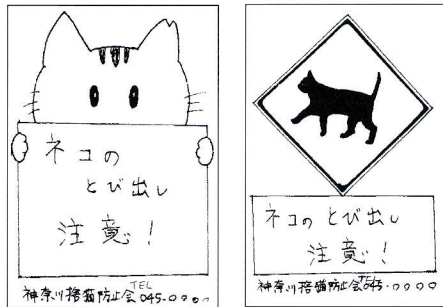 ネコの
とび出し
注意!
神奈川捨猫防止会 TEL 045-○○○○
ネコの とび出し
注意!
神奈川捨猫防止会 TEL 045-○○○○